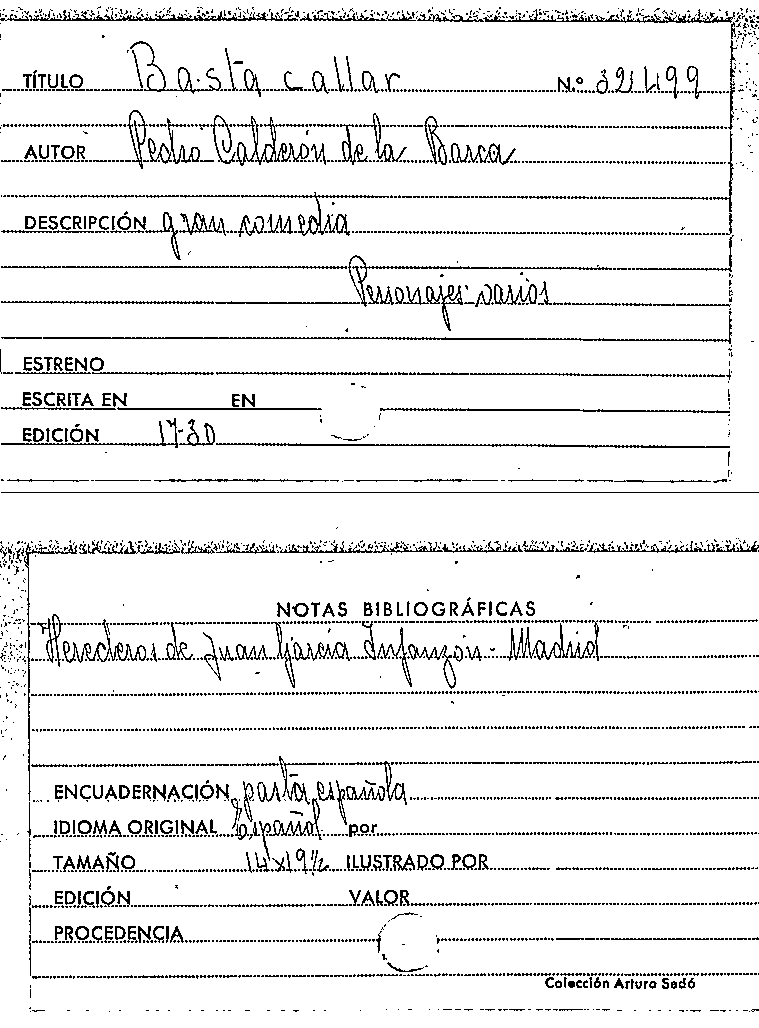 TÍTULO Basta callar N.º 32499
AUTOR Pedro Calderón de la Barca
DESCRIPCIÓN gran comedia
Personajes: varios
ESTRENO
ESCRITA EN EN
EDICIÓN 1730
NOTAS BIBLIOGRÁFICAS
Herederos de Juan García Infanzón - Madrid
ENCUADERNACIÓN pasta española
IDIOMA ORIGINAL Español por
TAMAÑO 14x19½ ILUSTRADO POR
EDICIÓN VALOR
PROCEDENCIA
Colección Arturo Sedó